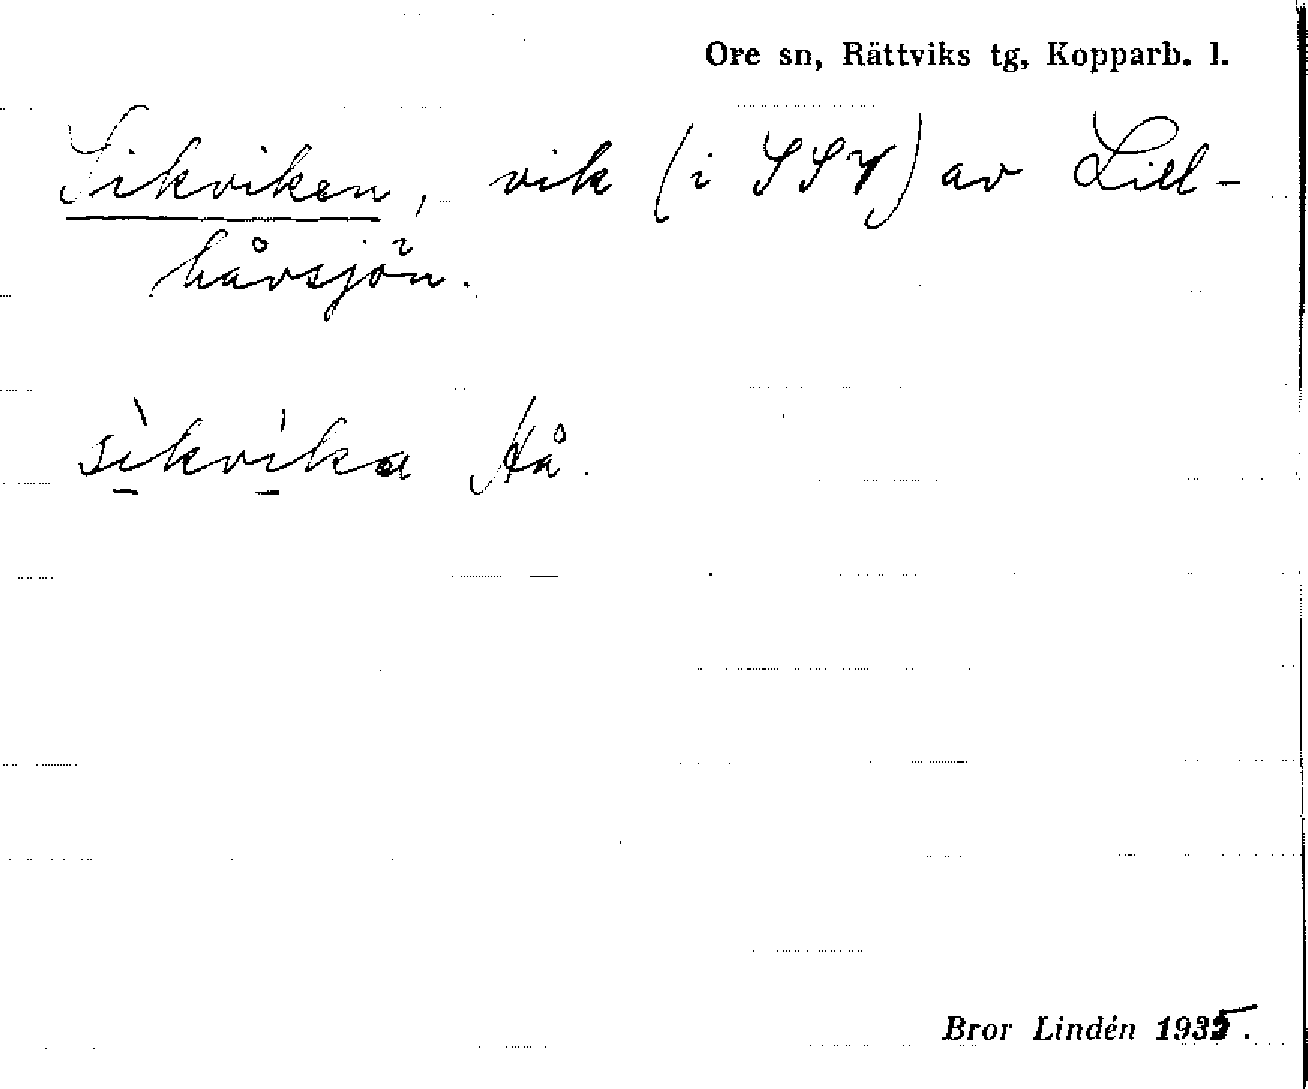 Ore sn, Rättviks tg, Kopparb. l.
Sikviken, vik (i SSV) av Lill-
håvsjön.
sìkvi̍ka Hå.
Bror Lindén 1935.